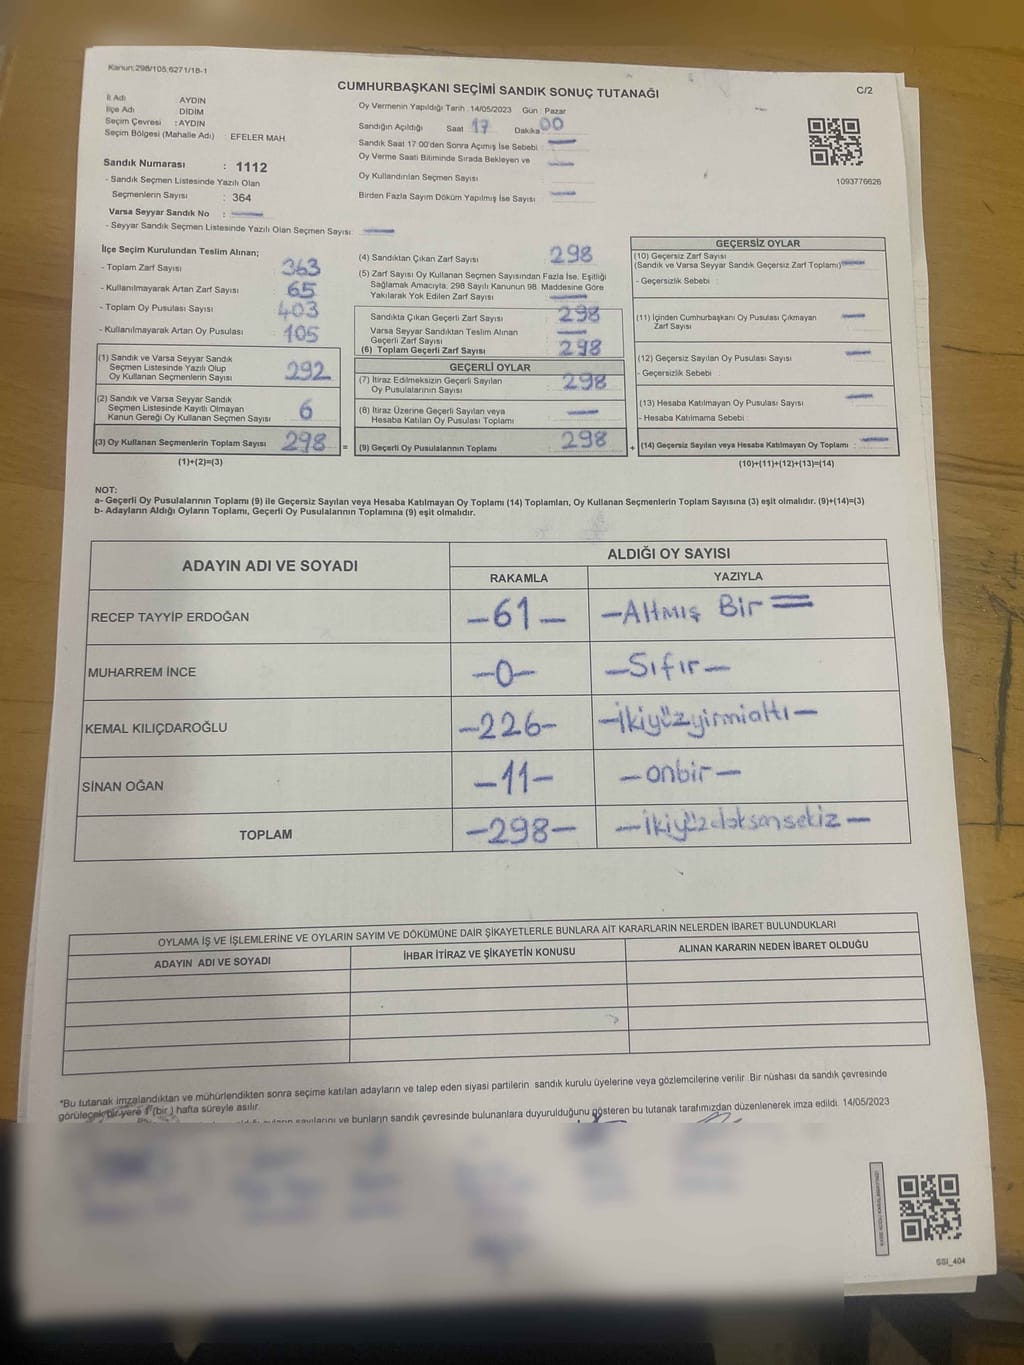 Kanun:298/105,6271/18-1
CUMHURBAŞKANI SEÇİMİ SANDIK SONUÇ TUTANAĞI
C/2
İl Adı AYDIN
İlçe Adı DİDİM
Seçim Çevresi : AYDIN
Seçim Bölgesi (Mahalle Adı) : EFELER MAH
Sandık Numarası : 1112
- Sandık Seçmen Listesinde Yazılı Olan
Seçmenlerin Sayısı : 364
Varsa Seyyar Sandık No :
- Seyyar Sandık Seçmen Listesinde Yazılı Olan Seçmen Sayısı:
Oy Vermenin Yapıldığı Tarih :14/05/2023 Gün : Pazar
Sandığın Açıldığı Saat 17 Dakika 00
Sandık Saat 17:00'den Sonra Açımış İse Sebebi :
Oy Verme Saati Bitiminde Sırada Bekleyen ve
Oy Kullandırılan Seçmen Sayısı
Birden Fazla Sayım Döküm Yapılmış İse Sayısı
1093776626
İlçe Seçim Kurulundan Teslim Alınan;
- Toplam Zarf Sayısı : 363
- Kullanılmayarak Artan Zarf Sayısı : 65
- Toplam Oy Pusulası Sayısı : 403
- Kullanılmayarak Artan Oy Pusulası : 105
(1) Sandık ve Varsa Seyyar Sandık
Seçmen Listesinde Yazılı Olup
Oy Kullanan Seçmenlerin Sayısı 292
(2) Sandık ve Varsa Seyyar Sandık
Seçmen Listesinde Kayıtlı Olmayan
Kanun Gereği Oy Kullanan Seçmen Sayısı 6
(3) Oy Kullanan Seçmenlerin Toplam Sayısı 298 =
(1)+(2)=(3)
(4) Sandıktan Çıkan Zarf Sayısı : 298
(5) Zarf Sayısı Oy Kullanan Seçmen Sayısından Fazla İse, Eşitliği
Sağlamak Amacıyla, 298 Sayılı Kanunun 98. Maddesine Göre
Yakılarak Yok Edilen Zarf Sayısı
Sandıkta Çıkan Geçerli Zarf Sayısı : 298
Varsa Seyyar Sandıktan Teslim Alınan
Geçerli Zarf Sayısı
(6) Toplam Geçerli Zarf Sayısı : 298
GEÇERLİ OYLAR
(7) İtiraz Edilmeksizin Geçerli Sayılan
Oy Pusulalarının Sayısı : 298
(8) İtiraz Üzerine Geçerli Sayılan veya
Hesaba Katılan Oy Pusulaları Toplamı
(9) Geçerli Oy Pusulalarının Toplamı : 298 +
GEÇERSİZ OYLAR
(10) Geçersiz Zarf Sayısı
(Sandık ve Varsa Seyyar Sandık Geçersiz Zarf Toplamı)
- Geçersizlik Sebebi :
(11) İçinden Cumhurbaşkanı Oy Pusulası Çıkmayan
Zarf Sayısı
(12) Geçersiz Sayılan Oy Pusulası Sayısı
- Geçersizlik Sebebi :
(13) Hesaba Katılmayan Oy Pusulası Sayısı
- Hesaba Katılmama Sebebi :
(14) Geçersiz Sayılan veya Hesaba Katılmayan Oy Toplamı :
(10)+(11)+(12)+(13)=(14)
NOT:
a- Geçerli Oy Pusulalarının Toplamı (9) ile Geçersiz Sayılan veya Hesaba Katılmayan Oy Toplamı (14) Toplamları, Oy Kullanan Seçmenlerin Toplam Sayısına (3) eşit olmalıdır. (9)+(14)=(3)
b- Adayların Aldığı Oyların Toplamı, Geçerli Oy Pusulalarının Toplamına (9) eşit olmalıdır.
ADAYIN ADI VE SOYADI
ALDIĞI OY SAYISI
RAKAMLA YAZIYLA
RECEP TAYYİP ERDOĞAN -61- -Altmış Bir=
MUHARREM İNCE -0- -Sıfır-
KEMAL KILIÇDAROĞLU -226- -İkiyüzyirmialtı-
SİNAN OĞAN -11- -onbir-
TOPLAM -298- -İkiyüzdoksansekiz-
OYLAMA İŞ VE İŞLEMLERİNE VE OYLARIN SAYIM VE DÖKÜMÜNE DAİR ŞİKAYETLERLE BUNLARA AİT KARARLARIN NELERDEN İBARET BULUNDUKLARI
ADAYIN ADI VE SOYADI İHBAR İTİRAZ VE ŞİKAYETİN KONUSU ALINAN KARARIN NEDEN İBARET OLDUĞU
*Bu tutanak imzalandıktan ve mühürlendikten sonra seçime katılan adayların ve talep eden siyasi partilerin sandık kurulu üyelerine veya gözlemcilerine verilir. Bir nüshası da sandık çevresinde
görülecek bir yere 1 (bir) hafta süreyle asılır.
sayılarını ve bunların sandık çevresinde bulunanlara duyurulduğunu gösteren bu tutanak tarafımızdan düzenlenerek imza edildi. 14/05/2023
SSI_404